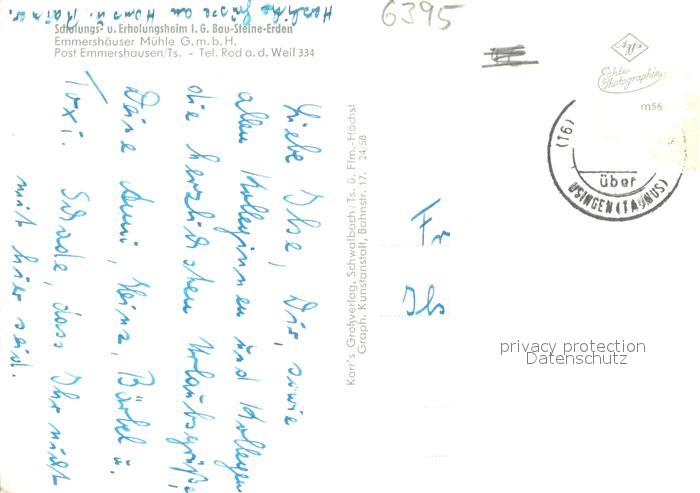 Herzliche Grüsse an Hans u. Rainer.
Schulungs- u. Erholungsheim I. G. Bau-Steine-Erden
Emmershäuser Mühle G. m. b. H.
Post Emmershausen/Ts. - Tel. Rod a. d. Weil 334
Liebe Ilse, Dir, sowie
allen Kolleginnen und Kollegen
die herzlichsten Urlaubsgrüße
Deine Anni, Heinz, Bärbel u.
Toxi. Schade, dass Ihr nicht
mit hier seid.
Korr's Großverlag, Schwalbach/Ts. ü. Ffm.-Höchst
Graph. Kunstanstalt, Bahnstr. 17. 24/58
6395
Agfa
Echte
Photographie
m56
(16)
über
USINGEN (TAUNUS)
Fr
Ils
privacy protection
Datenschutz